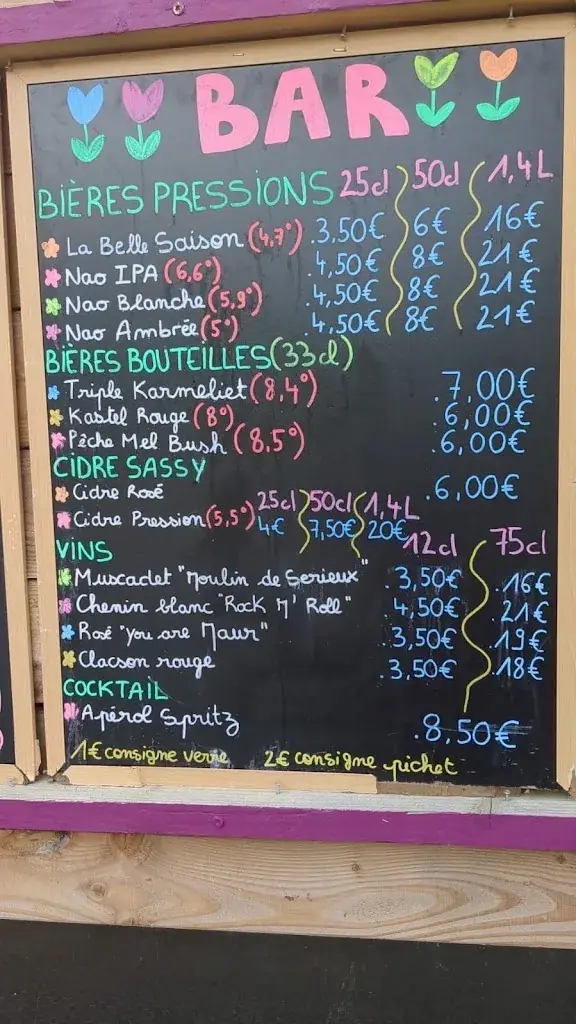 BAR
BIÈRES PRESSIONS 25cl 50cl 1,4L
La Belle Saison (4,7°) .3,50€ 6€ 16€
Nao IPA (6,6°) .4,50€ 8€ 21€
Nao Blanche (5,9°) .4,50€ 8€ 21€
Nao Ambrée (5°) .4,50€ 8€ 21€
BIÈRES BOUTEILLES (33cl)
Triple Karmeliet (8,4°) .7,00€
Kastel Rouge (8°) .6,00€
Pêche Mel Bush (8,5°) .6,00€
CIDRE SASSY
Cidre Rosé .6,00€
25cl 50cl 1,4L
Cidre Pression (5,5°) 4€ 7,50€ 20€
VINS 12cl 75cl
Muscadet "Moulin de Serieux" .3,50€ .16€
Chenin blanc "Rock N' Roll" 4,50€ .21€
Rosé "you are Maur" .3,50€ .19€
Clacson rouge .3,50€ .18€
COCKTAIL
Apérol Spritz .8,50€
1€ consigne verre 2€ consigne pichet